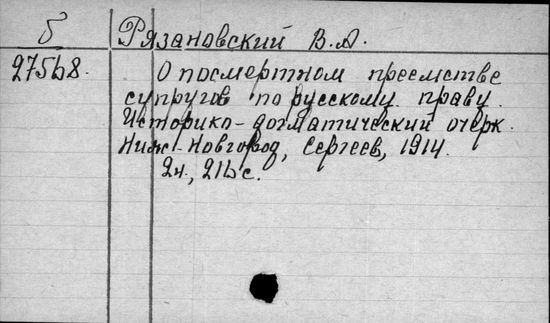 б Рязановский В.А.
27568. О посмертном преемстве
супругов по русскому праву.
Историко-догматический очерк.
Ниж-Новгород, Сергеев, 1914.
2н., 216 с.